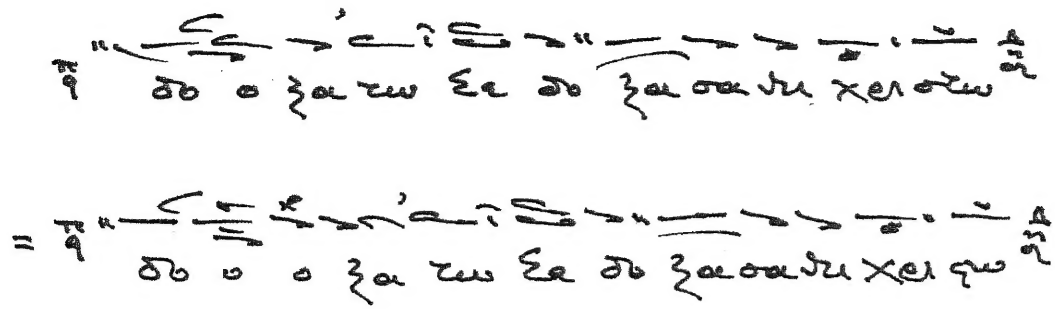 δο ο ξα τω σε δο ξα σα ντι χρι στω
= δο ο ο ξα τω σε δο ξα σα ντι χρι στω